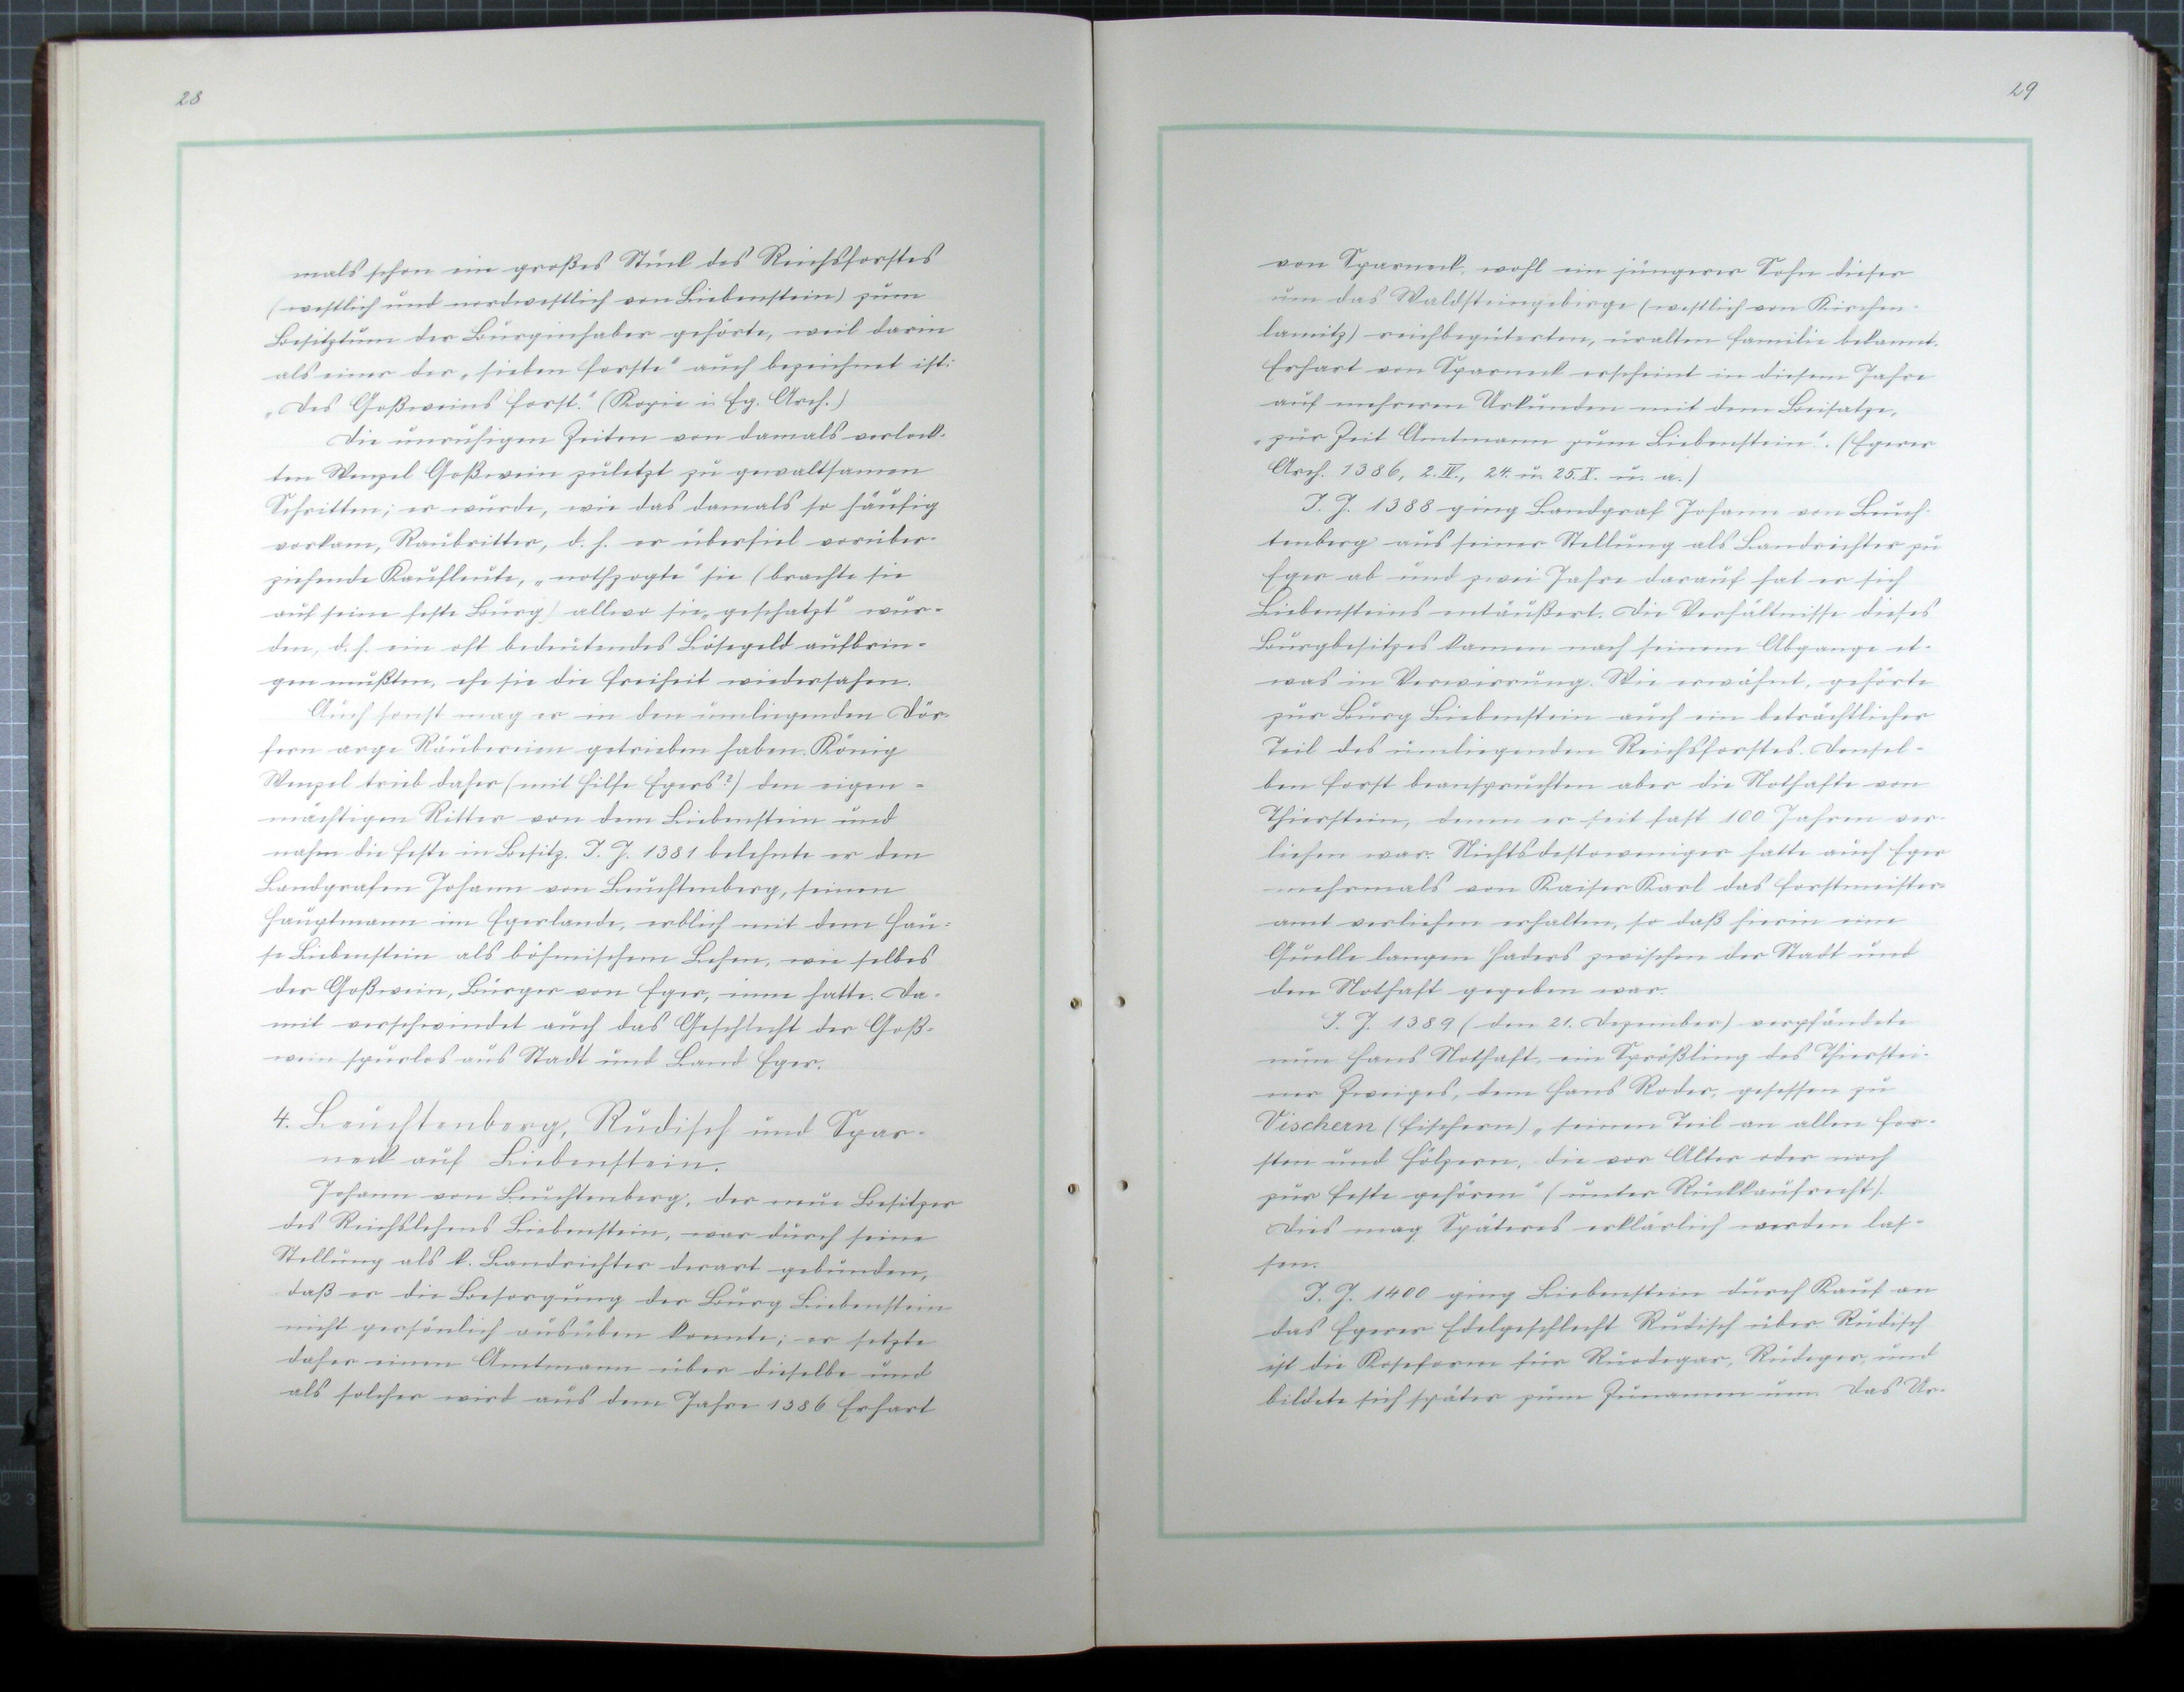 28
mals schon ein großes Stück des Reichsforstes
(westlich und nordwestlich von Liebenstein) zum
Besitztum der Burginhaber gehörte, weil darin
als einer der „sieben Forste“ auch bezeichnet ist:
„Des Goßweins Forst.“ (Kopie i. Eg. Arch.)
Die unruhigen Zeiten von damals verlock-
ten Wenzel Goßwein zuletzt zu gewaltsamen
Schritten; er wurde, wie das damals so häufig
vorkam, Raubritter, d. h. er überfiel vorüber-
ziehende Kaufleute, „nothzogte“ sie (brachte sie
auf seine feste Burg) allwo sie „geschatzt“ wur-
den, d. h. ein oft bedeutendes Lösegeld aufbrin-
gen mußten, ehe sie die Freiheit wiedersahen.
Auch sonst mag er in den umliegenden Dör-
fern arge Räubereien getrieben haben. König
Wenzel trieb daher (mit Hilfe Egers?) den eigen-
mächtigen Ritter von dem Liebenstein und
nahm die Feste in Besitz. I. J. 1381 belehnte er den
Landgrafen Johann von Leuchtenberg, seinen
Hauptmann im Egerlande, erblich mit dem Hau-
se Liebenstein als böhmischem Lehen, wie selbes
der Goßwein, Bürger von Eger, inne hatte. Da-
mit verschwindet auch das Geschlecht der Goß-
wein spurlos aus Stadt und Land Eger.
4. Leuchtenberg, Rudisch und Spar-
neck auf Liebenstein.
Johann von Leuchtenberg, der neue Besitzer
des Reichslehens Liebenstein, war durch seine
Stellung als k. Landrichter derart gebunden,
daß er die Besorgung der Burg Liebenstein
nicht persönlich ausüben konnte; er setzte
daher einen Amtmann über dieselbe und
als solcher wird aus dem Jahre 1386 Erhart
29
von Sparneck, wohl ein jüngerer Sohn dieser
um das Waldsteingebirge (westlich von Kirchen-
lamitz) reichbegüterten, uralten Familie bekannt.
Erhart von Sparneck erscheint in diesem Jahre
auf mehreren Urkunden mit dem Beisatze,
„zur Zeit Amtmann zum Liebenstein“. (Egerer
Arch. 1386, 2. IV., 24. u. 25. X. u. a.)
I. J. 1388 ging Landgraf Johann von Leuch-
tenberg aus seiner Stellung als Landrichter zu
Eger ab und zwei Jahre darauf hat er sich
Liebensteins entäußert. Die Verhältnisse dieses
Burgbesitzes kamen nach seinem Abgange et-
was in Verwirrung. Wie erwähnt, gehörte
zur Burg Liebenstein auch ein beträchtlicher
Teil des umliegenden Reichsforstes. Densel-
ben Forst beanspruchten aber die Nothafte von
Thierstein, denen er seit fast 100 Jahren ver-
liehen war. Nichtsdestoweniger hatte auch Eger
mehrmals von Kaiser Karl das Forstmeister-
amt verliehen erhalten, so daß hierin eine
Quelle langen Haders zwischen der Stadt und
den Nothaft gegeben war.
I. J. 1389 (den 21. Dezember) verpfändete
nun Hans Nothaft, ein Sprößling des Thierstei-
ner Zweiges, dem Hans Roder, gesessen zu
Vischern (Fischern) „seinen Teil an allen For-
sten und Hölzern, die vor Alter oder noch
zur Feste gehören“ (unter Rückkaufsrecht).
Dies mag Späteres erklärlich werden las-
sen.
I. J. 1400 ging Liebenstein durch Kauf an
das Egerer Edelgeschlecht Rudisch über. Rudisch
ist die Koseform für Ruodegar, Rüdeger, und
bildete sich später zum Zunamen um. Das Ur-